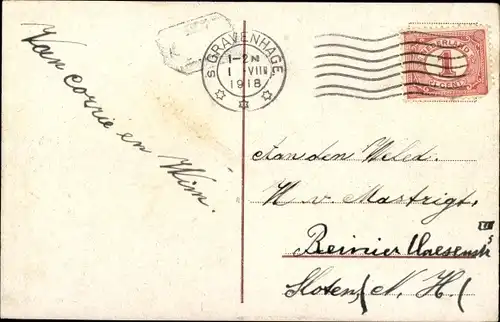 Van corrie en Wim.
'S GRAVENHAGE
1-2N
1 VIII
1918
NEDERLAND
1
CENT
Aan den Weled.
H v. Mastrigt,
Reinier
Sloten, (N. H.)